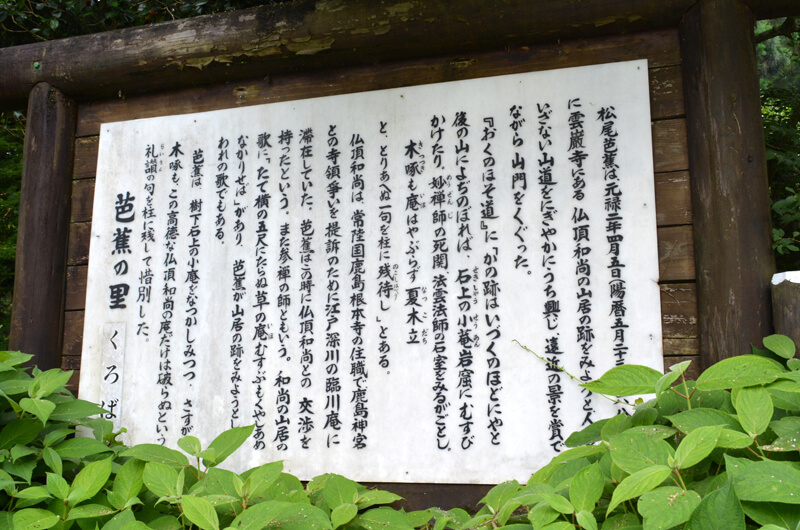 松尾芭蕉は、元禄二年四月五日(陽暦五月二十三
に雲巌寺にある 仏頂和尚の山居の跡をみようと人
いざない山道をにぎやかにうち興じ 遠近の景を賞で
ながら 山門をくぐった。
『おくのほそ道』に「かの跡はいづくのほどにやと
後の山によぢのぼれば、石上の小菴岩窟にむすび
かけたり。妙禅師の死関 法雲法師の石室をみるがごとし。
木啄も庵はやぶらず夏木立
と、とりあへぬ一句を柱に残待し」とある。
仏頂和尚は、常陸国鹿島根本寺の住職で鹿島神宮
との寺領争いを提訴のために江戸深川の臨川庵に
滞在していた。芭蕉はこの時に仏頂和尚との 交渉を
持ったという。また参禅の師ともいう。和尚の山居の
歌に、「たて横の五尺にたらぬ草の庵むすぶもくやしあめ
なかりせば」があり、芭蕉が山居の跡をみようとし
われの歌でもある。
芭蕉は、樹下石上の小庵をなつかしみつつ、さすが
木啄も、この高徳な仏頂和尚の庵だけは破らぬという
礼讃の句を柱に残して惜別した。
芭蕉の里 くろば